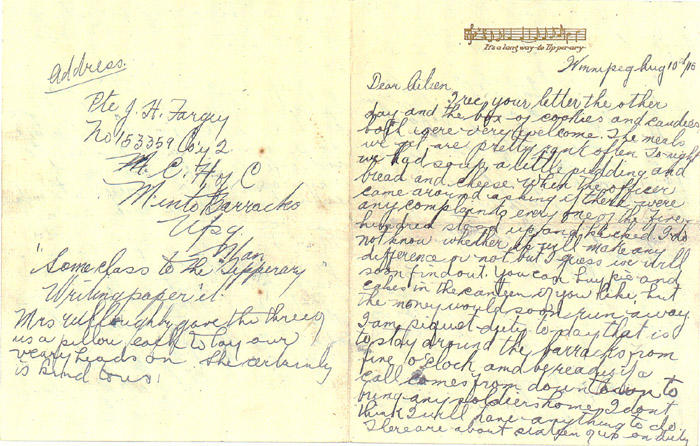 Address.
Pte J. H. Fargey
No 153359 Coy 2
M. C. H of C
Minto Barracks
Wpg
Man
"Some class to the Tipperary"
Writing paper eh.
Mrs Willoughby gave the three of
us a pillow each to lay our
weary heads on. She certainly
is kind to us!
It's a long way to Tipperary
Winnipeg Aug 10th/16
Dear Eileen.
I rec your letter the other
day and the box of cookies and candies
both were very welcome. The meals
we get are pretty punk often. Tonight
we had soup, a little pudding and
bread and cheese. When the officer
came around asking if there were
any complaints every one of the five
hundred stood up and kicked. I do
not know whether it will make any
difference or not but I guess we will
soon find out. You can buy pie and
cakes in the canteen if you like, but
the money would soon run away.
I am piquet duty to day that is
to stay around the barracks from
five o'clock, and be ready if a
call comes from down town to
bring any soldiers home. I dont
think I will have anything to do.
There are about sixteen of us on duty